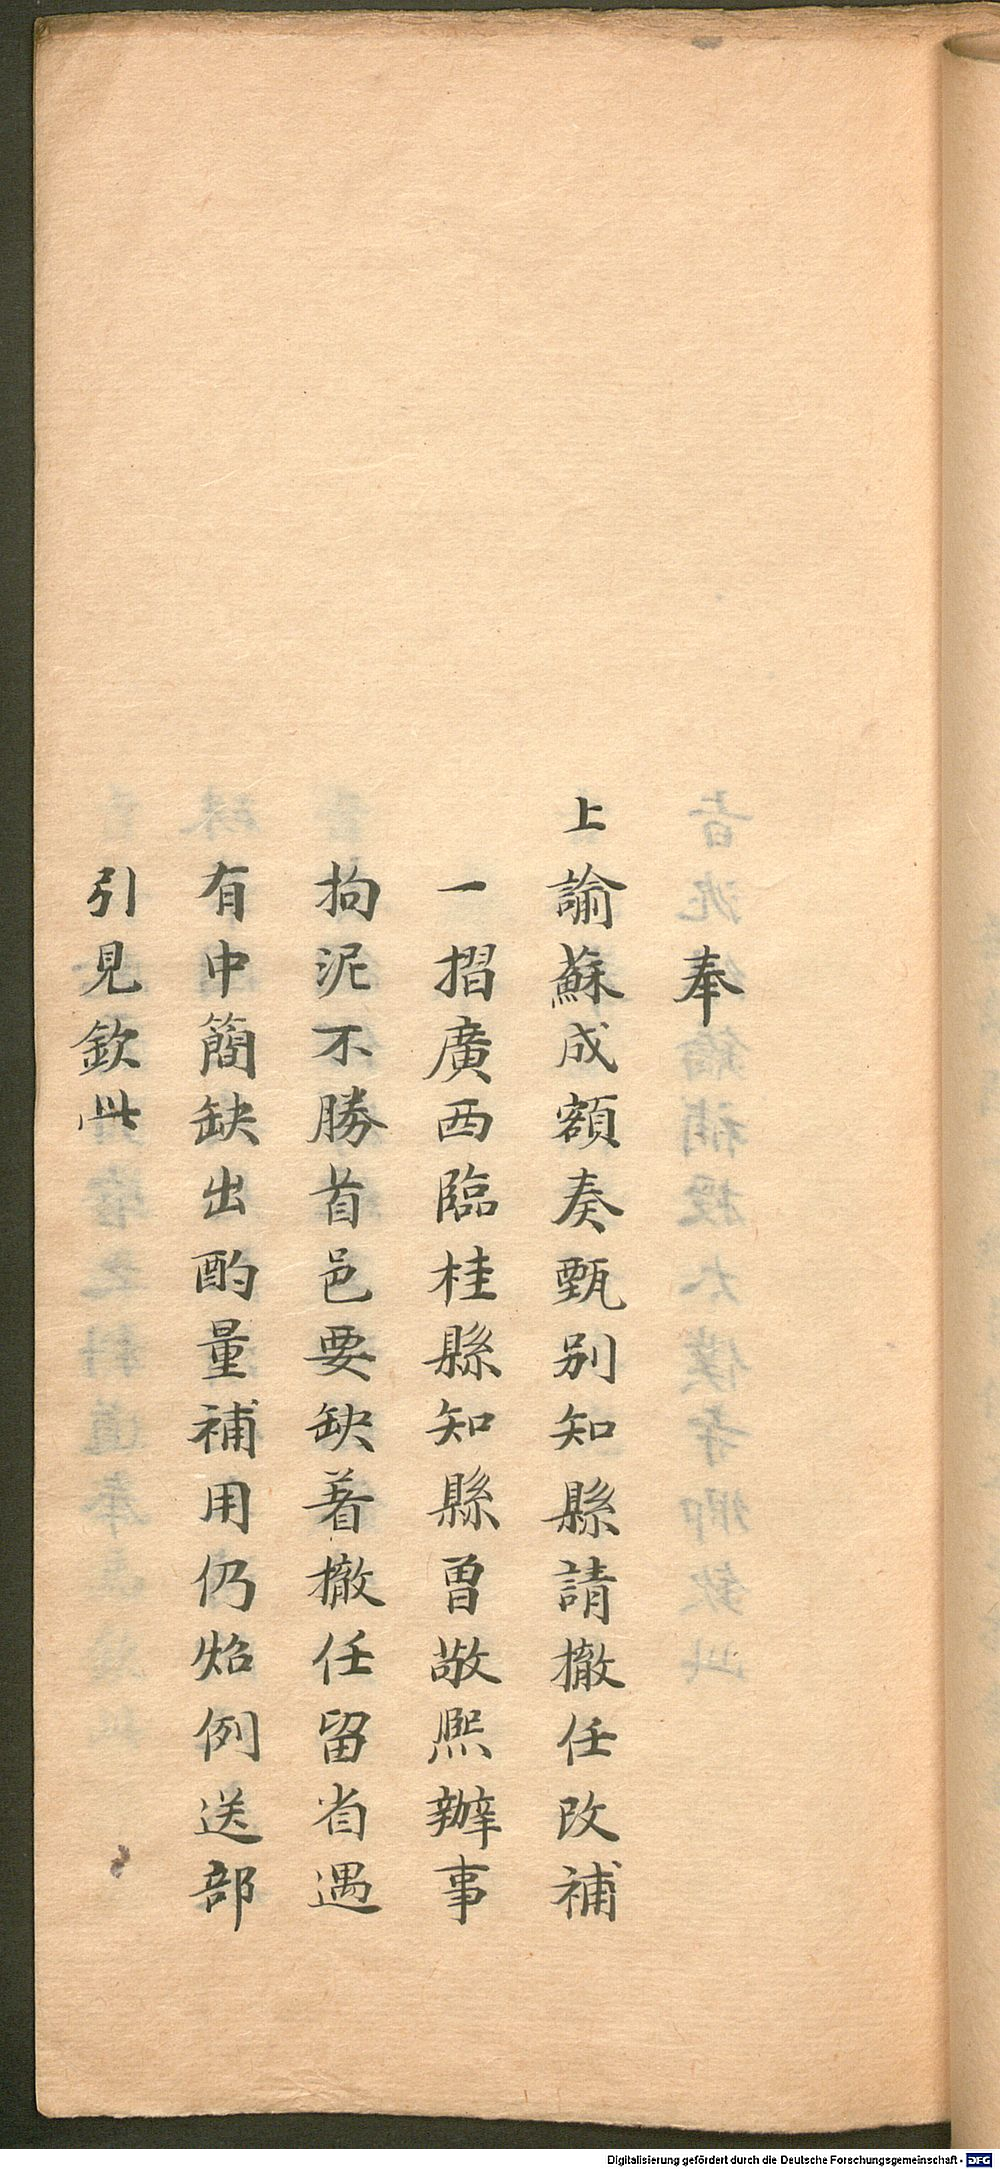 奉
上諭蘇成額奏甄别知縣請撤任改補
一摺廣西臨桂縣知縣曾敬熙辦事
拘泥不勝首邑要缺着撤任留省遇
有中簡缺出酌量補用仍炤例送部
引見欽此
Digitalisierung gefördert durch die Deutsche Forschungsgemeinschaft - DFG